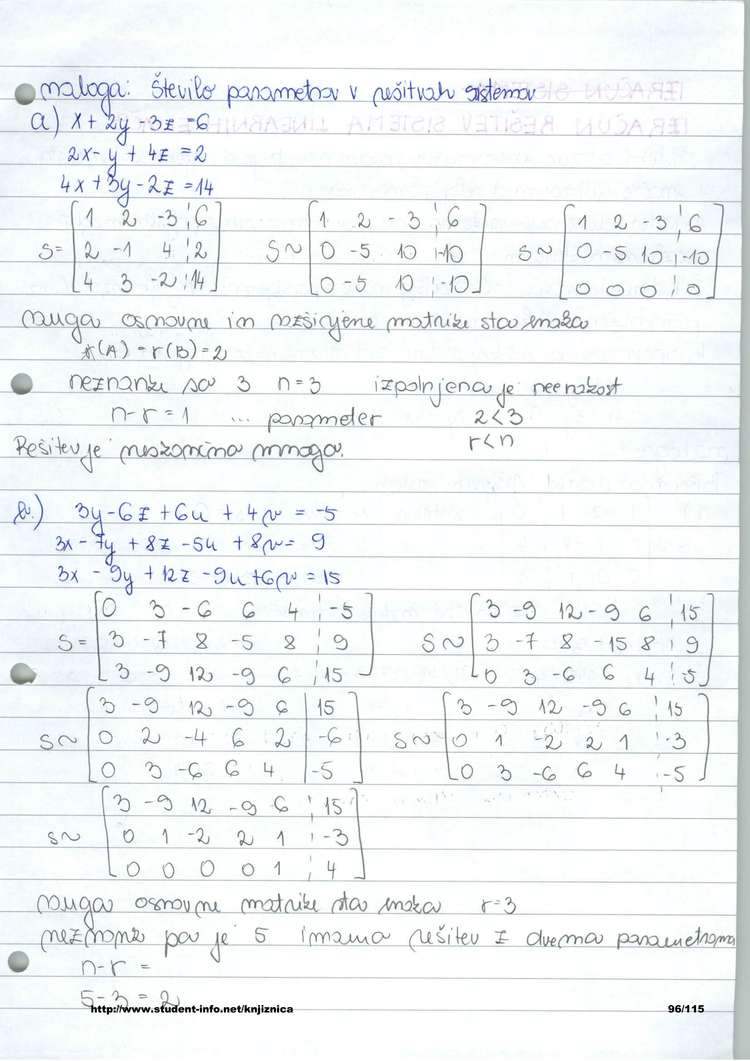 naloga: število parametrov v rešitvah sistemov
a) x + 2y - 3z = 6
2x - y + 4z = 2
4x + 3y - 2z = 14
S = [1 2 -3 ¦ 6] S ~ [1 2 -3 ¦ 6] S ~ [1 2 -3 ¦ 6]
[2 -1 4 ¦ 2] [0 -5 10 ¦ -10] [0 -5 10 ¦ -10]
[4 3 -2 ¦ 14] [0 -5 10 ¦ -10] [0 0 0 ¦ 0]
ranga osnovne in razširjene matrike sta enaka
r(A) = r(B) = 2
neznanke so 3 n=3 izpolnjena je neenakost
n-r = 1 ... parameter 2<3
Rešitev je neskončna mnoga. r<n
b.) 3y - 6z + 6u + 4v = -5
3x - 7y + 8z - 5u + 8v = 9
3x - 9y + 12z - 9u + 6v = 15
S = [0 3 -6 6 4 ¦ -5] S ~ [3 -9 12 -9 6 ¦ 15]
[3 -7 8 -5 8 ¦ 9] [3 -7 8 -15 8 ¦ 9]
[3 -9 12 -9 6 ¦ 15] [0 3 -6 6 4 ¦ -5]
S ~ [3 -9 12 -9 6 | 15] S ~ [3 -9 12 -9 6 ¦ 15]
[0 2 -4 6 2 | -6] [0 1 -2 2 1 ¦ -3]
[0 3 -6 6 4 | -5] [0 3 -6 6 4 ¦ -5]
S ~ [3 -9 12 -9 6 ¦ 15]
[0 1 -2 2 1 ¦ -3]
[0 0 0 0 1 ¦ 4]
ranga osnovne matrike sta enaka r=3
neznank pa je 5 imama rešitev z dvema parametroma
n-r =
5-3 = 2
http://www.student-info.net/knjiznica 96/115